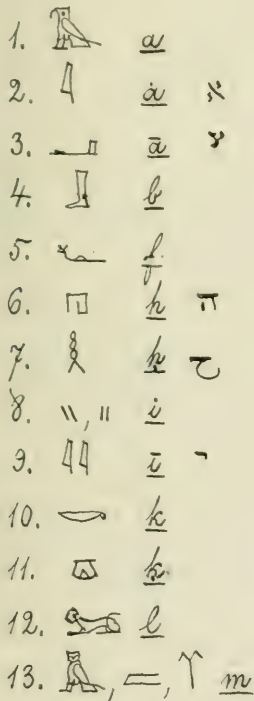 1. 𓄿 a
2. 𓇋 ȧ א
3. 𓂝 ā ע
4. 𓃀 b
5. 𓆑 f
6. 𓉔 h ה
7. 𓎛 ḥ
8. \\, II i
9. 𓇌 ī י
10. 𓎡 k
11. 𓎼 ḳ
12. 𓃭 l
13. 𓅓, 𓐝, m